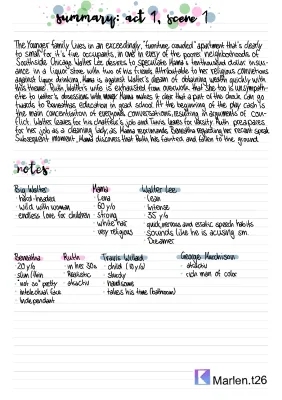 summary: act 1, scene 1
The Younger family lives in an exceedingly, "furniture crowded" apartment that's clearly
to small for it's five occupants, in one in every of the poorer neighborhoods of
Southside Chicago. Walter Lee desires to speculate Mama's tenthousand dollar insur-
ance in a liquor store with two of his friends. Attributable to her religious convictions
against liquor drinking, Mama is against Walter's dream of obtaining wealth quickly with
this theme. Ruth, Walter's wife is exhausted from overwork that She too is unsympath-
etic to Walter's obsessions with money. Mama makes it clear that a part of the check can go
towards to Beneathas education in grad school. At the beginning of the play cash is
the main concentration of everyones conversations, resulting in arguments of con-
flict. Walter leaves for his chauffer's job and Travis leaves for Varsity. Ruth prepares
for her job as a cleaning lady, as Mama reprimands Beneatha regarding her recent speak.
Subsequent moment, Mama discovers that Ruth has fainted and fallen to the ground.
notes
Big Walter
· hard-headed
· wild with woman
· endless love for children
Mama
· Lena
· 60 y/o
· strong
· white hair
· very religious
Walter Lee
· lean
· intense
· 35 y/o
· quick, nervous and erratic speech habits
· sounds like he is acusing sm.
· Dreamer
Beneatha
· 20 y/o
· slim/thin
· "not so" pretty
· intelectual face
· independent
Ruth
· in her 30s
· Realistic
Travis Willard
· child (10 y/o)
· sturdy
· handsome
· takes his time (bathroom)
George Murchison
· rich man of color
Marlen.t26